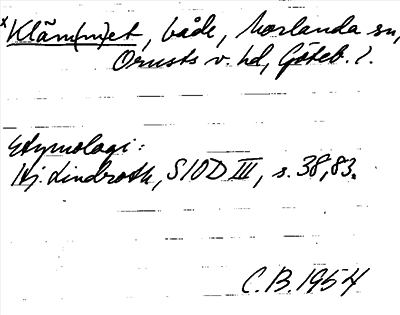 ×Kläm(m)et, både, Morlanda sn,
Orusts v. hd, Göteb. l.
Etymologi:
Hj. Lindroth, SIOD III, s. 38, 83.
C.B. 1954